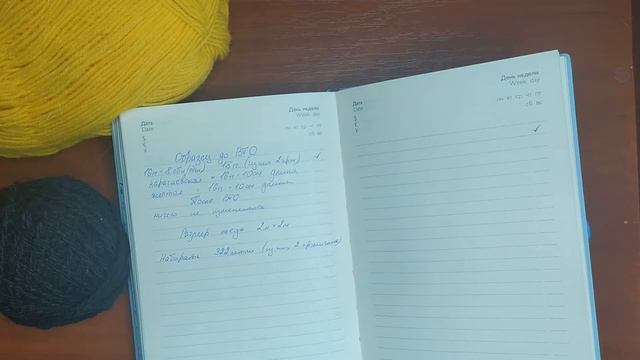 Дата
Date
День недели
Week day
пн вт ср чт пт
сб вс
Образец до ВТО
18п (из них 2 кром)
= 16п - 10см длина
желтая = 16п - 10см длина
После ВТО
ничего не изменилось
Размер пледа 2м × 2м
Набираем 322 петли (из них 2 кромочные)
Дата
Date
День недели
Week day
пн вт ср чт пт
сб вс